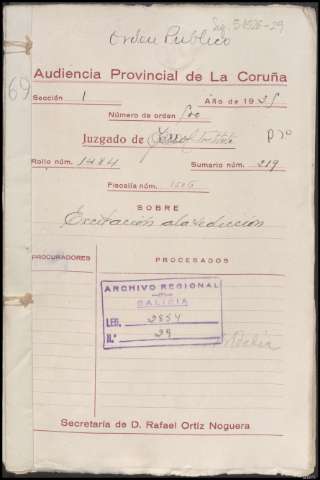 Sig. 51926-29
Orden Publico
69
Audiencia Provincial de La Coruña
Sección 1 Año de 1935
Número de orden 500
Juzgado de
Rollo núm. 1484 Sumario núm. 219
Fiscalía núm. 1506
SOBRE
Excitación a la sedición
PROCURADORES PROCESADOS
ARCHIVO REGIONAL
GALICIA
LEG. 2854
N.º 29
Secretaría de D. Rafael Ortiz Noguera